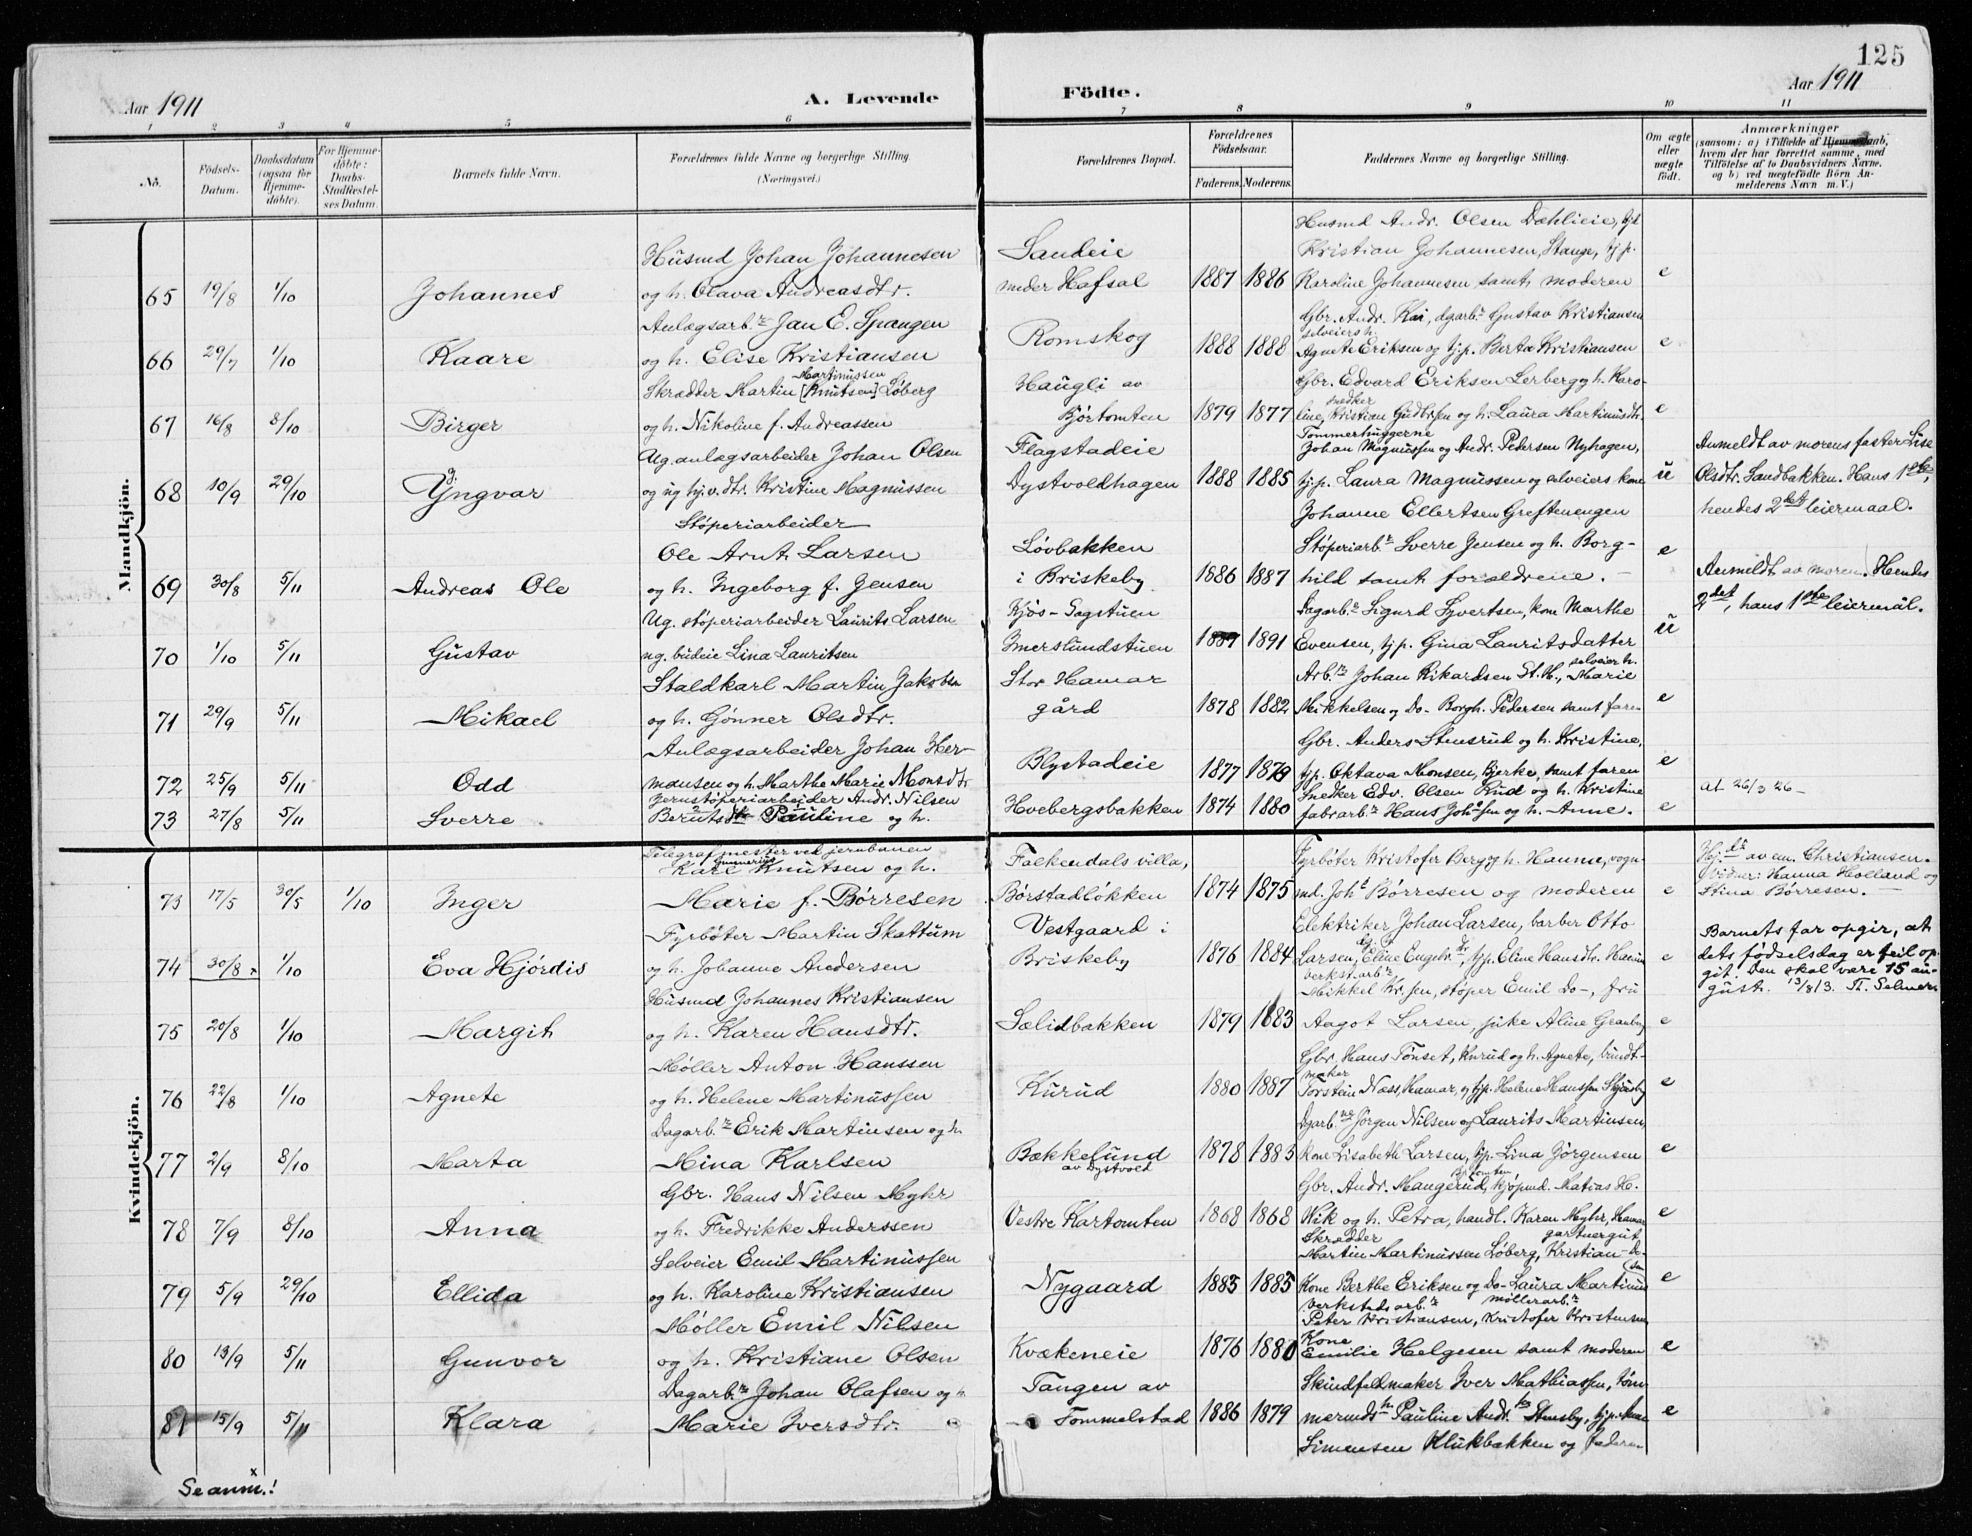 125
Aar 1911
A. Levende
Födte.
Aar 1911
1 2 3 4 5 6 7 8 9 10 11
No.
Födsels-Datum.
Daabsdatum (ogsaa for Hjemme-döbte).
For Hjemme-döbte: Daabs-Stadfæstel-ses Datum.
Barnets fulde Navn.
Forældrenes fulde Navne og borgerlige Stilling. (Næringsvei.)
Forældrenes Bopæl.
Forældrenes Födselsaar.
Faderens. Moderens.
Faddernes Navne og borgerlige Stilling.
Om ægte eller uægte födt.
Anmærkninger
(saasom: a) i Tilfælde af Hjemmedaab, hvem der har forrettet samme, med Tilföielse af to Daabsvidners Navne. og b) ved uegtefödte Börn An-melderens Navn m. V.)
Mandkjön.
65 19/8 1/10 Johannes
Husmd Johan Johannesen
og h. Olava Andreasdtr.
Sandeie
under Hafsal
1887 1886
Husmd Andr. Olsen Dæhlieie,
Kristian Johannesen, Stange, tj.p.
Karoline Johannesen samt moderen
e
66 29/7 1/10 Kaare
Anlægsarb.r Jan E. Spangen
og h. Elise Kristiansen
Romskog
1888 1888
Gbr. Andr. Kai, dgarb.r Gustav Kristiansen
selveiers h.
Agnete Eriksen og tj.p. Berta Kristiansen
e
67 16/8 8/10 Birger
Martinussen
Skrædder Martin [Knutsen] Løberg
og h. Nikoline f. Andreassen
Haugli av
Bjørtomten
1879 1877
Gbr. Edvard Eriksen Lerberg og h. Karo-
snedker
line, Kristian Gudbrsen og h. Laura Martinusdtr.
e
68 10/9 29/10 Yngvar
Ug. anlægsarbeider Johan Olsen
og ug hj.v. dtr. Kristine Magnussen
Flagstadeie
Dystvoldhagen
1888 1885
Tømmerhuggerne
Johan Magnussen og Andr. Pedersen Nyhagen,
tj.p. Laura Magnussen og selveiers kone
Johanne Ellertsen Greftenengen
u
Anmeldt av morens faster Lise
Olsdtr. Sandbakken. Hans 1ste,
hendes 2det leiermaal.
69 30/8 5/11 Andreas Ole
Støperiarbeider
Ole Arnt Larsen
og h. Ingeborg f. Jensen
Løvbakken
i Briskeby
1886 1887
Støperiarb.r Sverre Jensen og h. Borg-
hild samt forældrene.
e
70 1/10 5/11 Gustav
Ug. støperiarbeider Laurits Larsen
ug. budeie Lina Lauritsen
Kjøs-Sagstuen
Imerslundstuen
1889 1891
Dagarb.r Sigurd Syvertsen, kone Marthe
Evensen, tj.p. Gina Lauritsdatter
u
Anmeldt av moren. Hendes
2det, hans 1ste leiermål.
71 29/9 5/11 Mikael
Staldkarl Martin Jakobsen
og h. Gønner Olsdtr.
Stor Hamar
gård
1878 1882
selveier h.
Arb.r Johan Rikardsen St. H., Marie
Mikkelsen og Do- Borgh. Pedersen samt faren
e
72 25/9 5/11 Odd
Anlægsarbeider Johan Her-
mansen og h. Marthe Marie Monsdtr
Blystadeie
1877 1879
Gbr. Anders Stensrud og h. Kristine,
tj.p. Oktava Monsen, Bjerke, samt faren
e
73 27/8 5/11 Sverre
Jernstøperiarbeider Andr. Nilsen
Berntsdtr Pauline og h.
Hvebergsbakken
1874 1880
Snedker Edv. Olsen Rud og h. Kristine
fabrarb.r Hans Johssen og h. Anne.
e
at 26/3 26 -
Kvindekjön.
73 17/5 30/5 1/10 Inger
Telegrafmester ved jernbanen
Gunnerius
Karl Knutsen og h.
Marie f. Børresen
Falkendals villa,
Børstadløkken
1874 1875
Fyrbøter Kristofer Berg og h. Hanna, vogn-
md. Joht Børresen og moderen
e
Hj.db av em. Christiansen.
Vidner: Hanna Holland og
Stina Børresen.
74 30/8 x 1/10 Eva Hjördis
Fyrbøter Martin Skattum
og h. Johanne Andersen
Vestgaard i
Briskeby
1876 1884
Elektriker Johan Larsen, barber Otto
Larsen, Eline Engebr.dr, tj.p. Eline Hansdtr.
e
Barnets far opgir, at
dets fødselsdag er feil op-
git. Den skal være 15 au-
gust. 13/8 13. Th. Selmer
75 20/8 1/10 Margit
Husmd Johannes Kristiansen
og h. Karen Hansdtr.
Sælidbakken
1879 1883
verkst.arb.r
Mikkel Kr.sen, støper Emil Do-, fru
Aagot Larsen, pike Aline Granberg
e
76 22/8 1/10 Agnete
Møller Anton Hanssen
og h. Helene Martinussen
Kurud
1880 1887
Gbr. Hans Tønset, Kurud og h. Agnete, bundt-
maker
Torstein Næss, Hamar, og tj.p. Helene Hanssen Skjæseby
e
77 2/9 8/10 Marta
Dagarb.r Erik Martinsen og h.
Mina Karlsen
Bækkelund
av Dystvold
1878 1883
Dgarb.ne Jørgen Nilsen og Laurits Martinsen,
kone Lisabeth Larsen, tj.p. Lina Jörgensen
e
78 7/9 8/10 Anna
Gbr. Hans Nilsen Myhr
og h. Fredrikke Anderssen
Vestre Kartomten
1868 1868
Gbr. Andr. Mangerud, kjøpmd. Matias H.
Wik og h. Petra, handl. Karen Myhr, Hamar
e
79 5/9 29/10 Ellida
Selveier Emil Martinussen
og h. Karoline Kristiansen
Nygaard
1883 1885
Skrædder gartnergut
Martin Martinussen Løberg, Kristian Do-
Kone Berthe Eriksen og Do- Laura Martinussen
e
80 13/9 5/11 Gunvor
Møller Emil Nilsen
og h. Kristiane Olsen
Kvækeneie
1876 1880
Verkstedsarb.r møllerarb.r
Peter Kristiansen, Kristofer Kristensen
Kone
Emilie Helgesen samt moderen
e
81 15/9 5/11 Klara
Dagarb.r Johan Olafsen og h.
Marie Iversdtr.
Tangen av
Tommelstad
1886 1879
Skindfellmaker Iver Mathiassen, tøm-
mermds h. Pauline Andr. Stensby, tj.p.
Simensen Klukbakken og Faderen
e
Se anm. x!